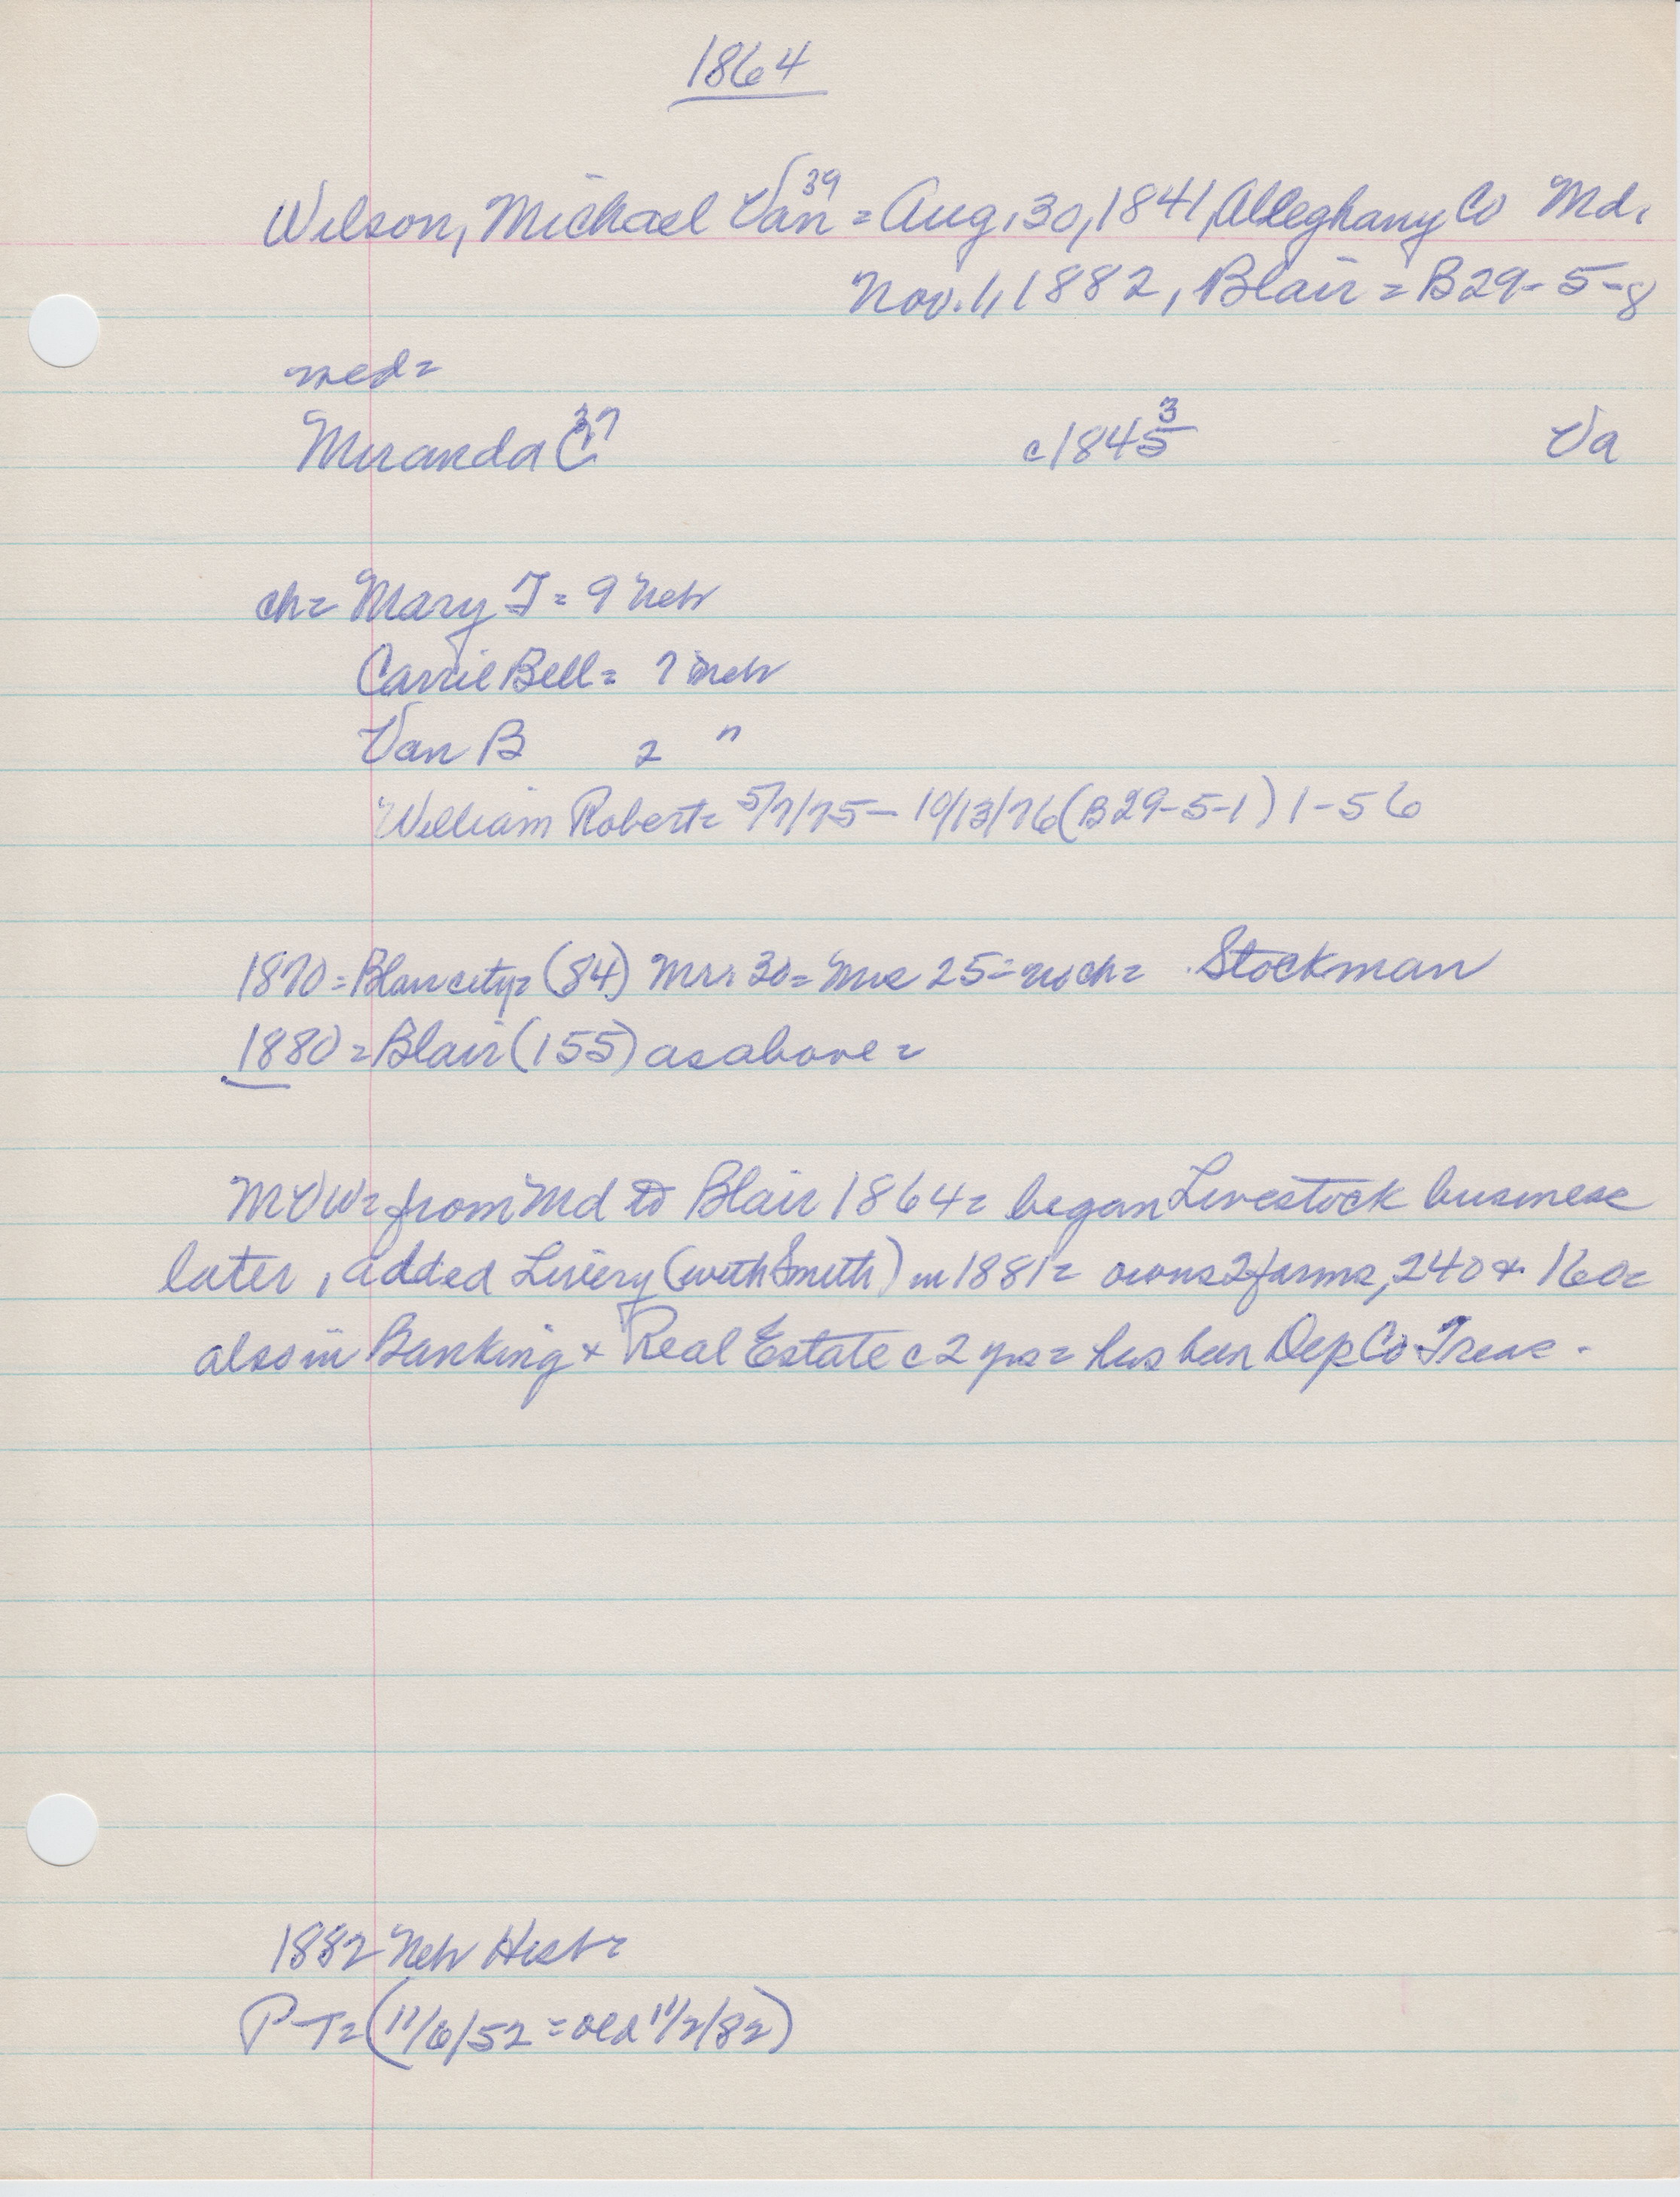 1864
Wilson, Michael Van 39 = Aug, 30, 1841, Alleghany Co Md.
Nov. 1, 1882, Blair = B29-5-8
med =
Miranda C 37 c 1845 3 Va
ch = Mary J = 9 Neb
Carrie Bell = 7 Neb
Van B 2 "
William Robert = 5/7/75 - 10/13/76 (B29-5-1) 1-5-6
1870 = Blair city = (84) Mr. 30 = Mrs 25 = no ch = Stockman
1880 = Blair (155) as above =
MVW = from Md to Blair 1864 = began Livestock business
later, added Livery (with Smith) in 1881 = owns 2 farms, 240 & 160 =
also in Banking & Real Estate c 2 yrs = has been Dep Co Treas.
1882 Neb Hist =
PT = (11/6/52 = old 11/2/82)